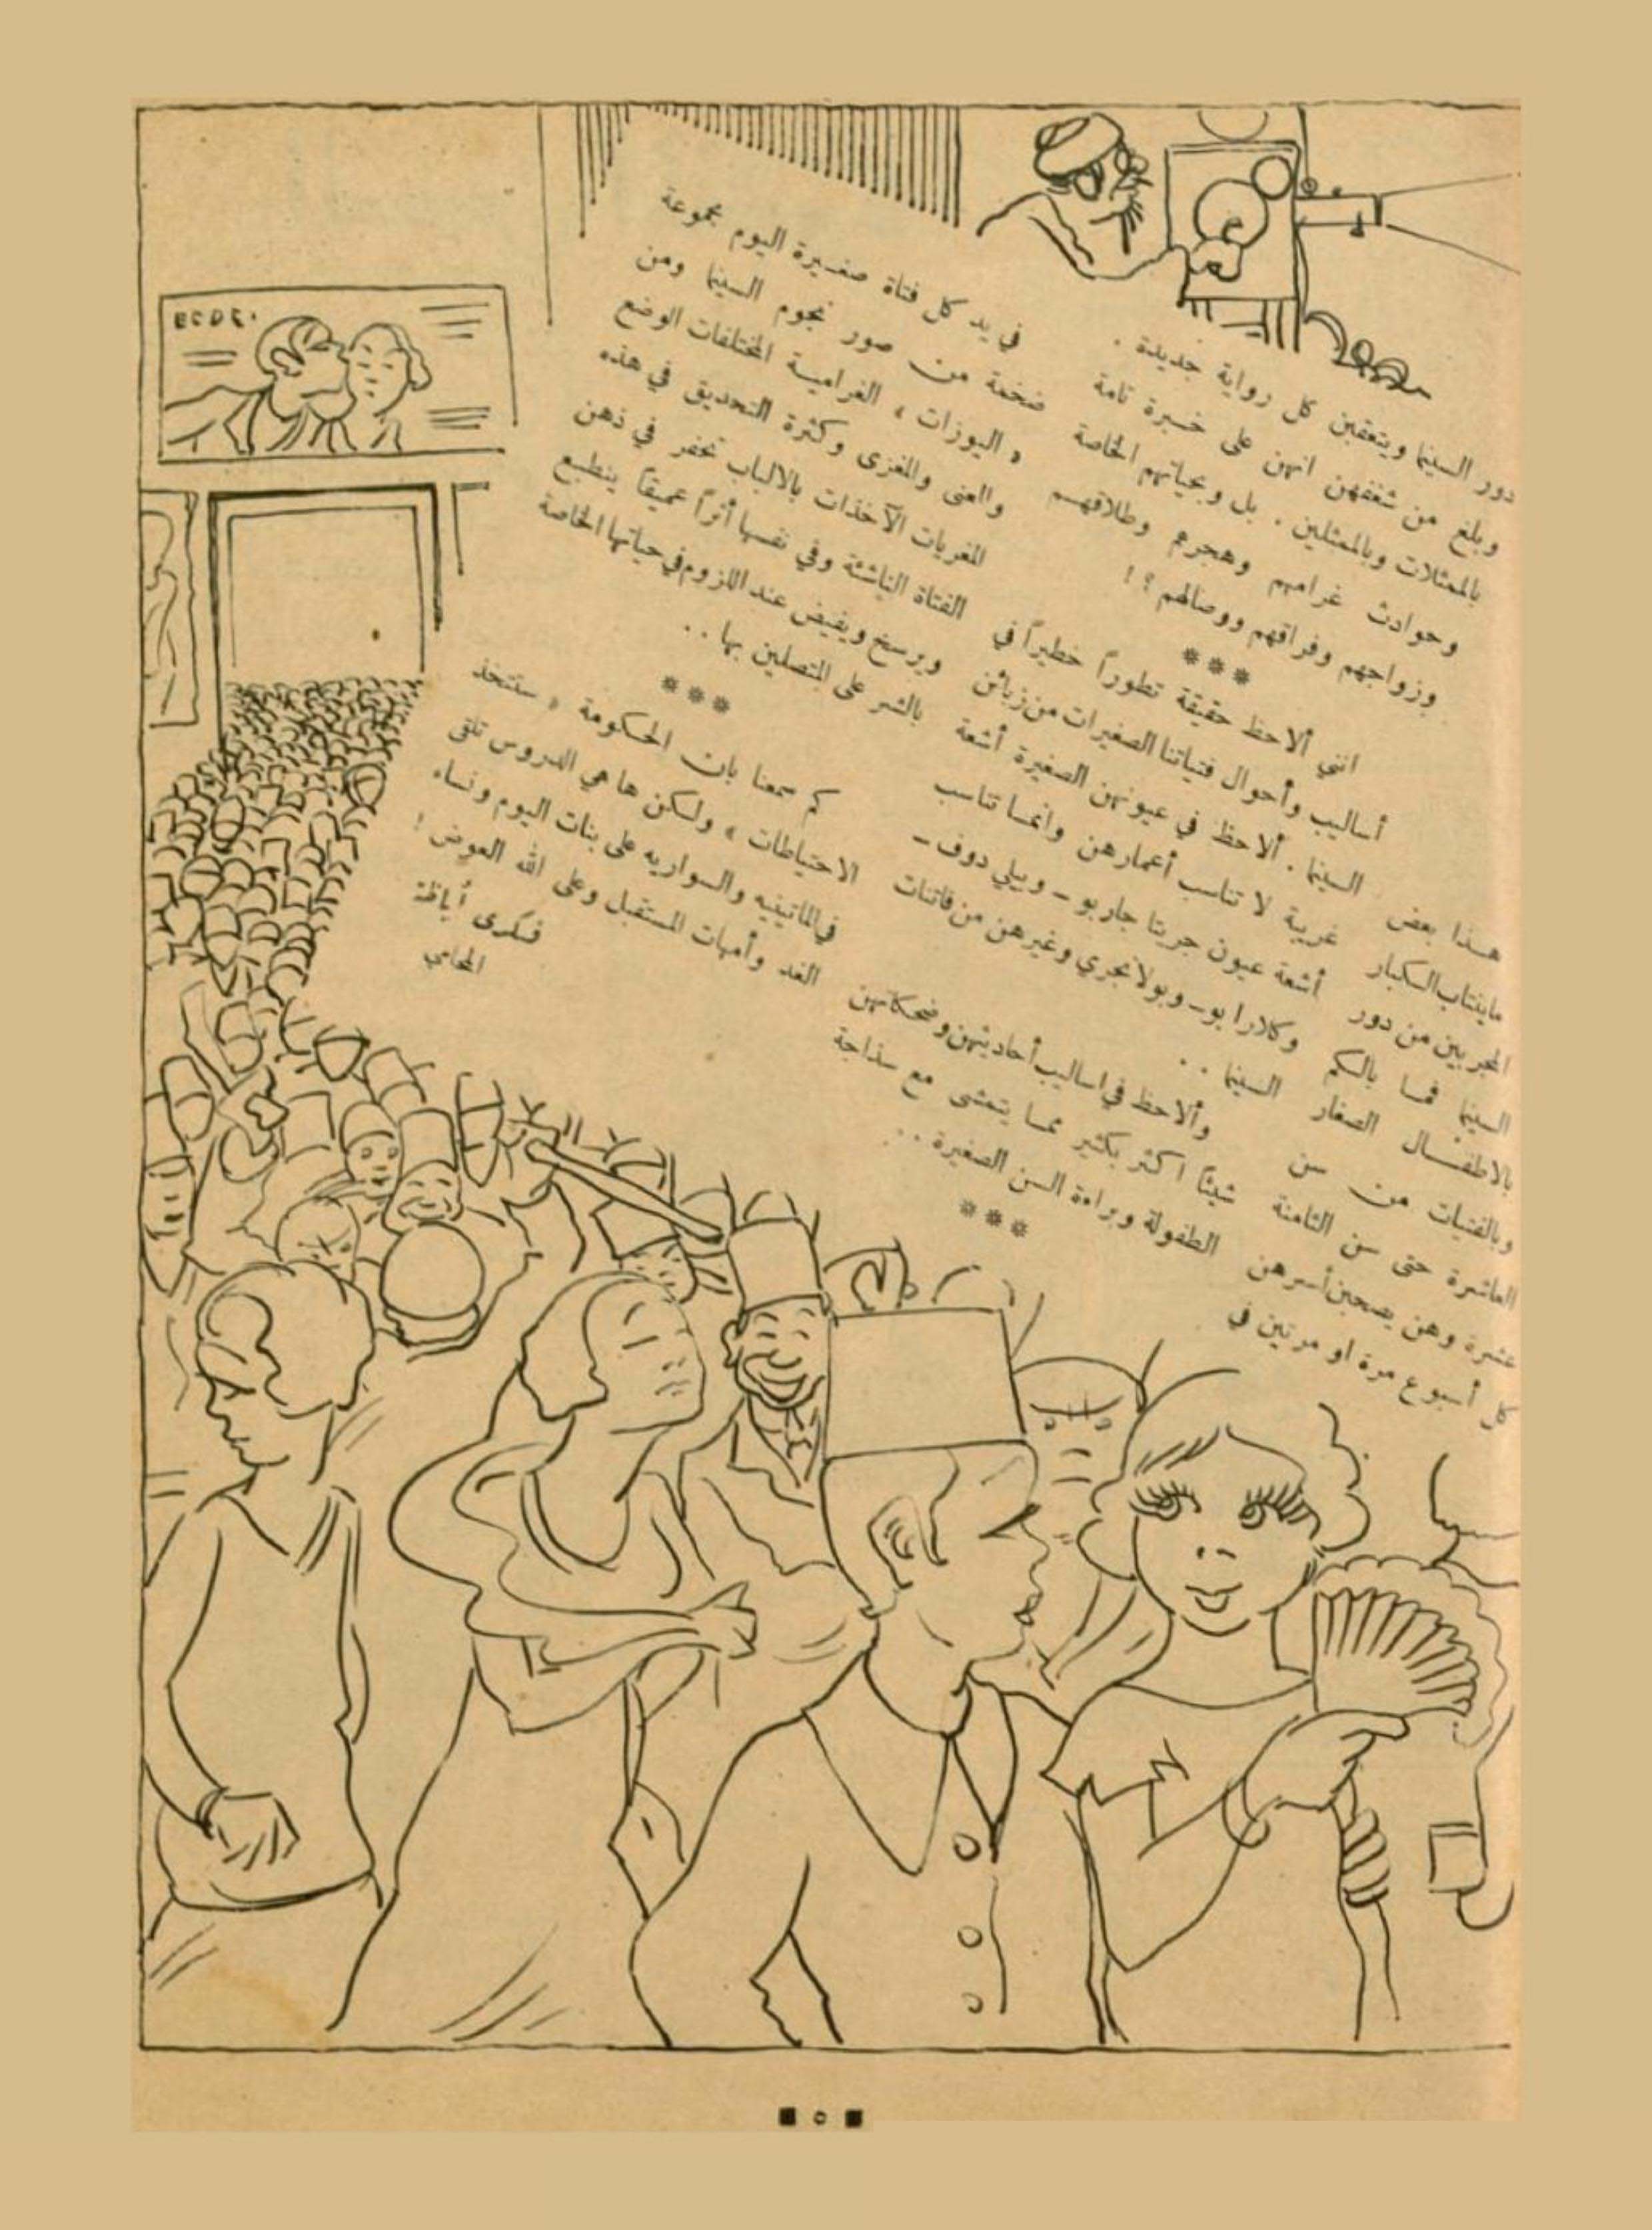 هذا بعض
ماينتاب الكبار
المجربين من دور
السينما فما بالكم
بالاطفال الصغار
وبالفتيات من سن
العاشرة حتى سن الثامنة
عشرة وهن يصحبن أسرهن
كل أسبوع مرة او مرتين في
دور السينما ويتعقبن كل رواية جديدة .
وبلغ من شغفهن انهن على خبرة تامة
بالممثلات وبالممثلين . بل وبحياتهم الخاصة
وحوادث غرامهم وهجرهم وطلاقهم
وزواجهم وفراقهم ووصالهم ؟ !
***
انني ألاحظ حقيقة تطوراً خطيراً في
أساليب وأحوال فتياتنا الصغيرات من زبائن
السينما . ألاحظ في عيونهن الصغيرة أشعة
غريبة لا تناسب أعمارهن وانما تناسب
أشعة عيون جريتا جاربو – وبيلي دوف –
وكلارا بو – وبولا نجري وغيرهن من فاتنات
السينما . .
وألاحظ في اساليب أحاديثهن وضحكاتهن
شيئاً اكثر بكثير مما يتمشى مع سذاجة
الطفولة وبراءة السن الصغيرة . .
***
في يد كل فتاة صغيرة اليوم مجموعة
ضخمة من صور نجوم السينما ومن
« البوزات » الغرامية المختلفات الوضع
والمعنى والمغزى وكثرة التحديق في هذه
المغريات الآخذات بالالباب تحفر في ذهن
الفتاة الناشئة وفي نفسها أثراً عميقاً ينطبع
ويرسخ ويفيض عند اللزوم في حياتها الخاصة
بالشر على المتصلين بها . .
***
كم سمعنا بان الحكومة « ستتخذ
الاحتياطات » ولكن ها هي الدروس تلقى
في الماتينيه والسواريه على بنات اليوم ونساء
الغد وأمهات المستقبل وعلى الله العوض !
فكرى أباظة
المحامي
٥